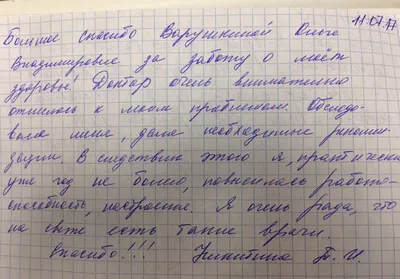 11.07.17
Большое спасибо Варушкиной Ольге
Владимировне за заботу о моём
здоровье! Доктор очень внимательно
отнеслась к моим проблемам. Обследо-
вала меня, дала необходимые рекоменд-
дации. В следствии этого я, практически
уже год не болею, повысилась работо-
способность, настроение. Я очень рада, что
на свете есть такие врачи.
Спасибо!!! Никитина Т. И.